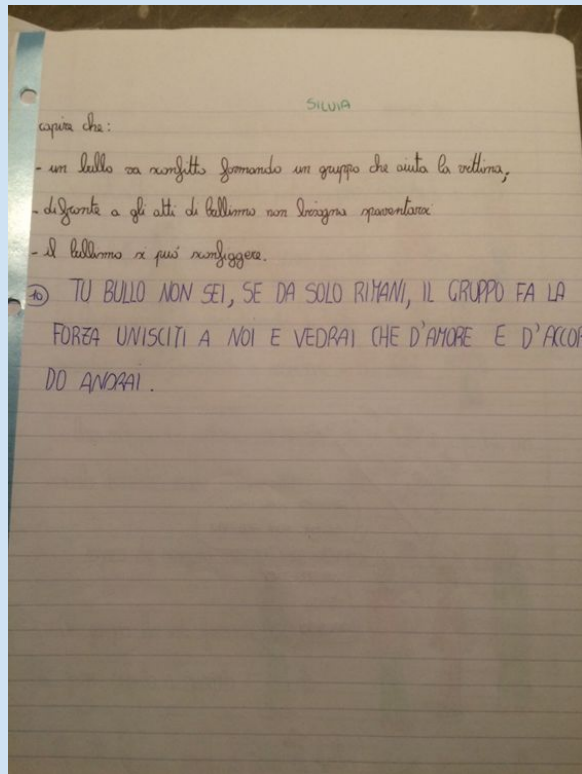 SILVIA
capire che:
- un bullo va sconfitto formando un gruppo che aiuta la vittima;
- difronte a gli atti di bullismo non bisogna spaventarsi
- il bullismo si può sconfiggere.
10 TU BULLO NON SEI, SE DA SOLO RIMANI, IL GRUPPO FA LA
FORZA UNISCITI A NOI E VEDRAI CHE D'AMORE E D'ACCOR
DO ANDRAI.